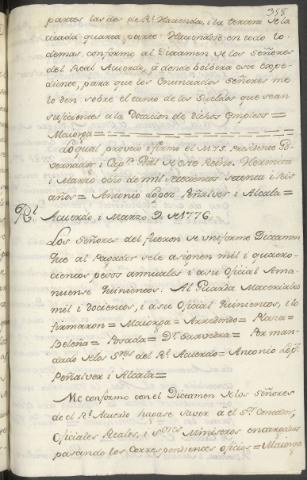 358
partes las dos de Rl. Hacienda, i la tercera de la
citada quarta parte Haciendose en todo lo
demas conforme al Dictamen de los Señores
del Real Acuerdo, á donde bolberá este Expe-
diente, para que los enunciados señores me
lo den sobre el tanto de los Sueldos que sean
suficientes a la Dotacion de dichos empleos =
Maiorga =
Lo qual proveió i firmó el M. I. S. Presidente Go-
vernador i Capn. Gral. de este Reino. Hermita
i Marzo ocho de mil setecientos setenta i seis
años = Antonio Lopez Peñalver i Alcala =
Rl. Acuerdo, i Marzo 9 de 1776.
Los Señores del fueron de uniforme Dictamen
que al Pagador se le asignen mil i quatro-
cientos pesos annuales i a su Oficial Ama-
nuense quinientos. Al Guarda Materiales
mil i docientos, i a su Oficial quinientos, i lo
firmaron = Maiorga = Arredondo = Plaza =
Beleña = Posada = Dr. Saavedra = Por man-
dado de los Sres. del Rl. Acuerdo = Antonio Lopz.
Peñalver i Alcala =
Me conformo con el Dictamen de los Señores
de el Rl. Acuerdo hagase saver á el Sr. Contador,
Oficiales Reales, i Sres. Ministros encargados
pasando los correspondientes oficios = Maiorga